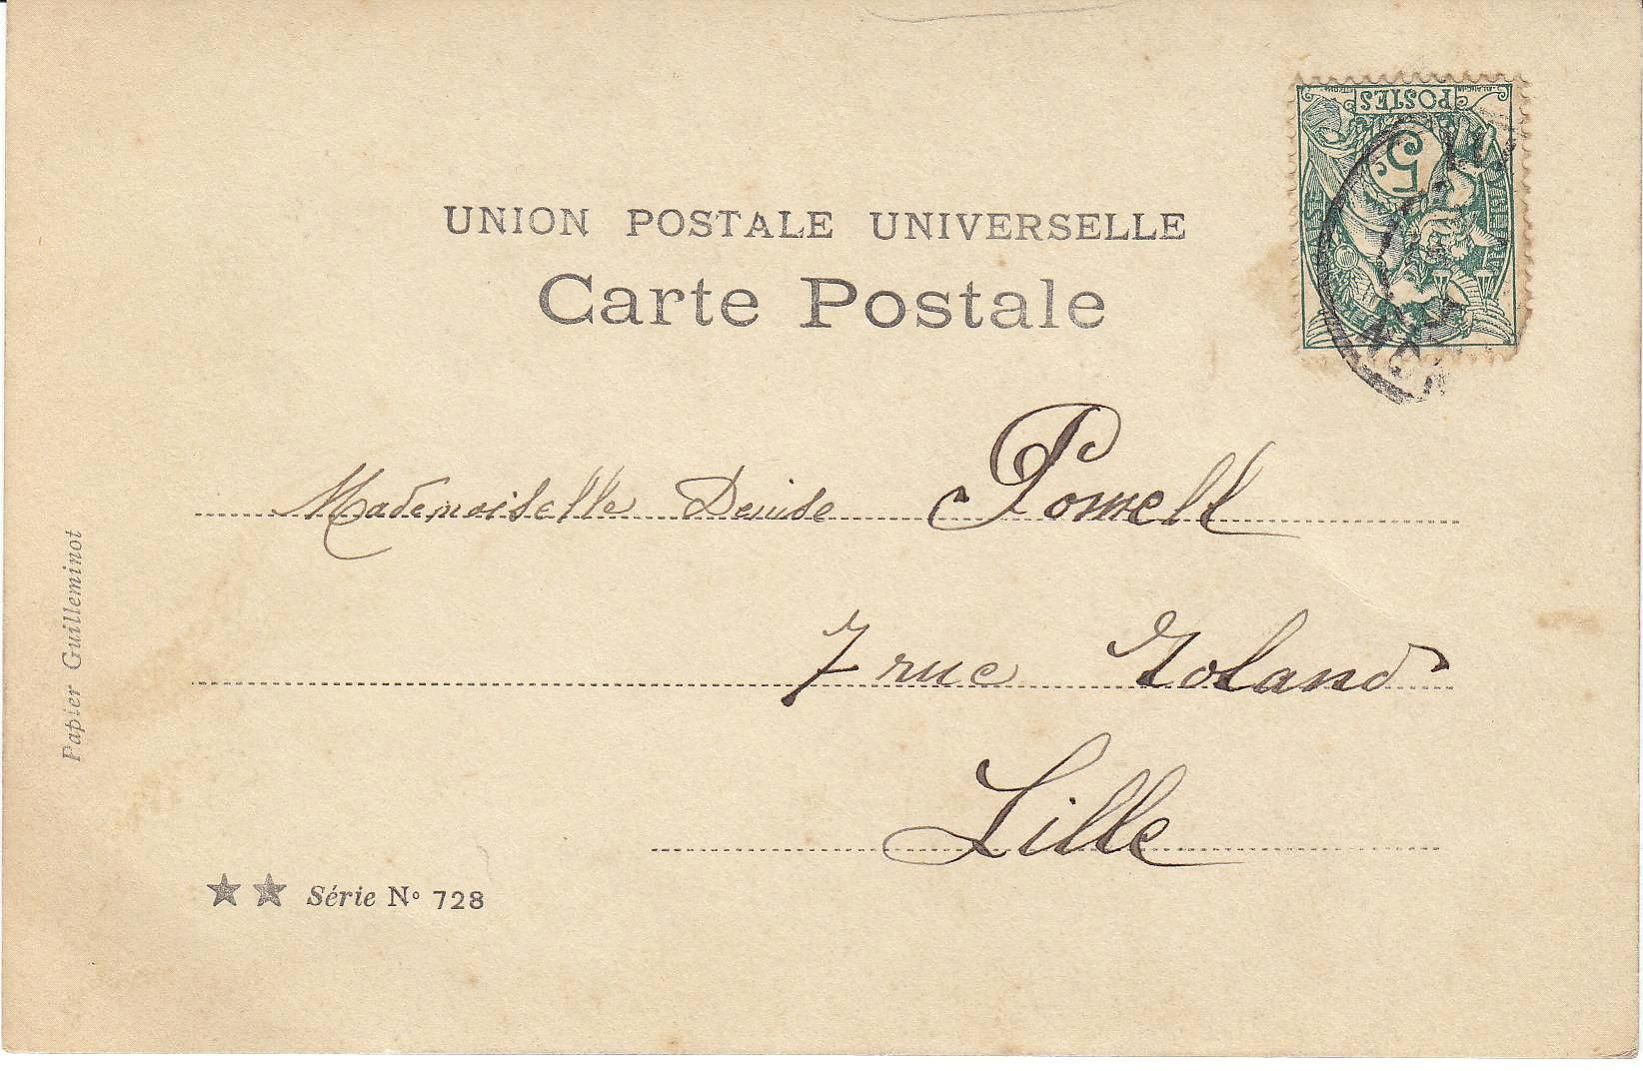 POSTES
5c
UNION POSTALE UNIVERSELLE
Carte Postale
Mademoiselle Denise Powell
7 rue Roland
Lille
Papier Guilleminot
Série Nº 728